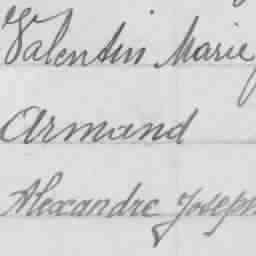 Valentin Marie
Armand
Alexandre Joseph